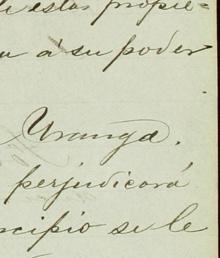 estas propie=
á su poder
Uranga.
perjudicará
cipio se le